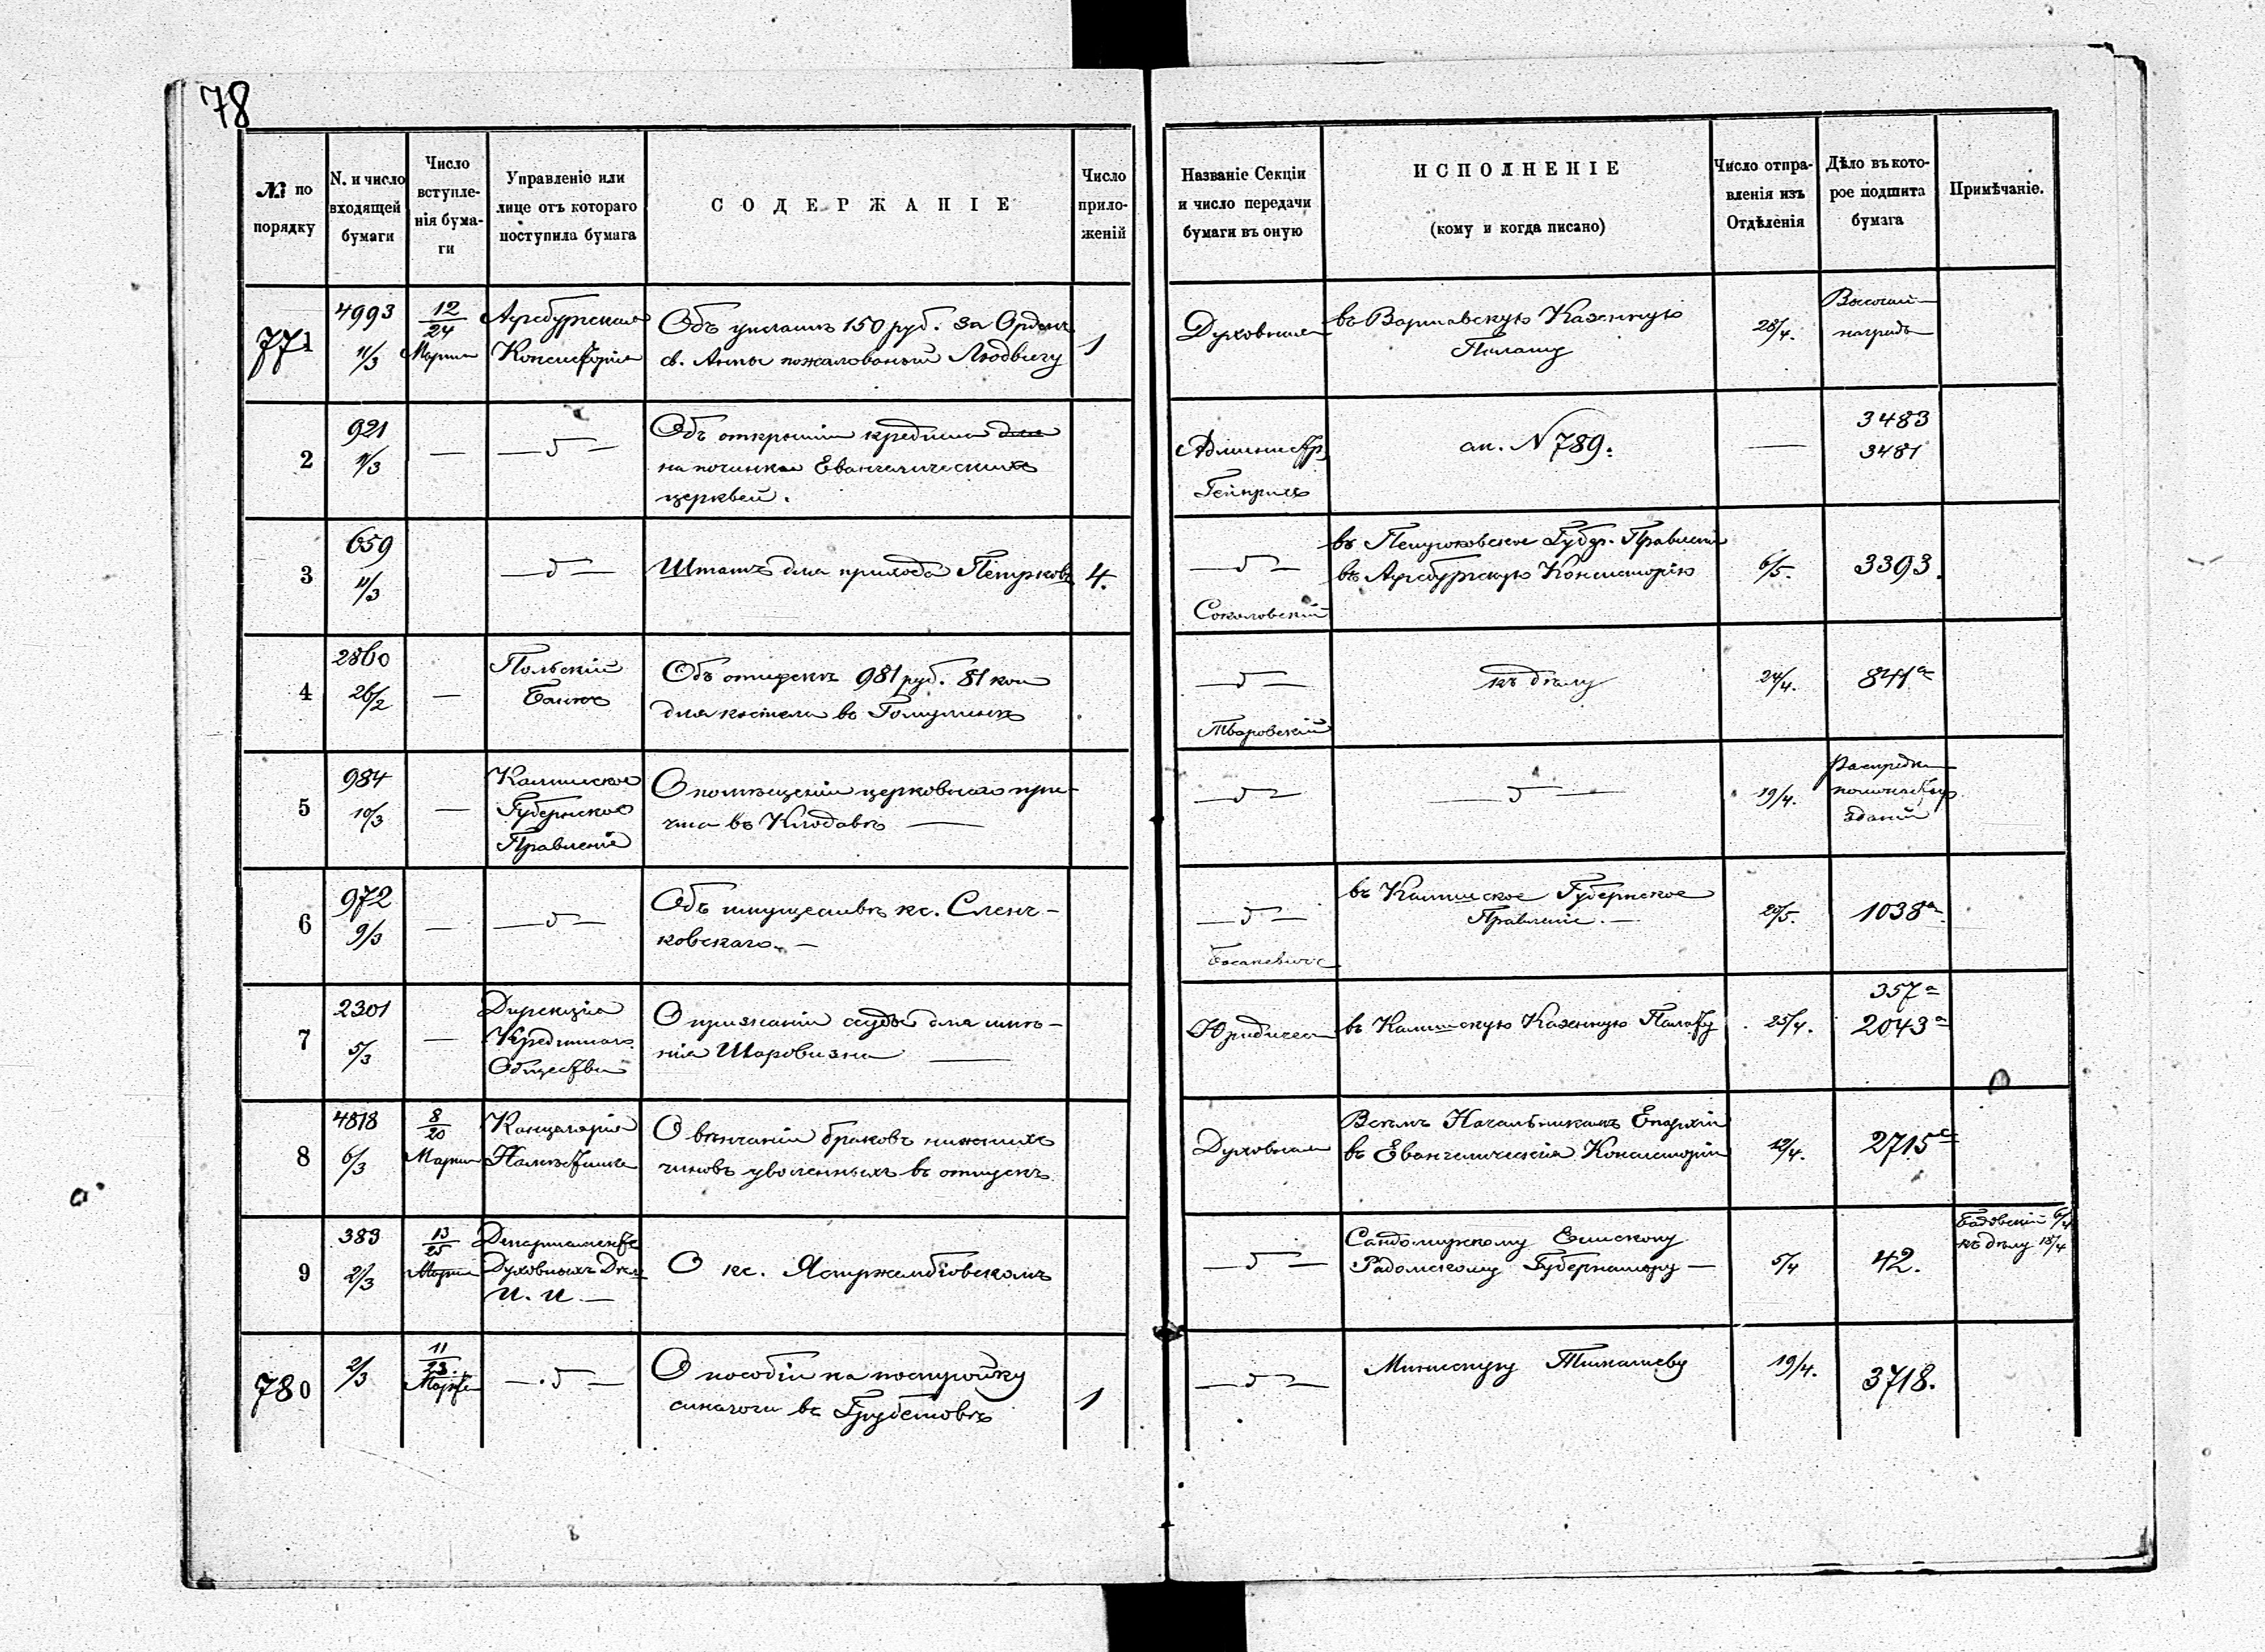 78
№ по порядку
N. и число входящей бумаги
Число вступленія бумаги
Управленіе или лице отъ котораго поступила бумага
СОДЕРЖАНІЕ
Число приложеній
Названіе Секціи и число передачи бумаги въ оную
ИСПОЛНЕНІЕ
(кому и когда писано)
Число отправленія изъ Отдѣленія
Дѣло въ которое подшита бумага
Примѣчаніе.
771
4993
11/3
12/24
Марта
Аугсбургская
Консисторія
Объ уплатѣ 150 руб. за Орденъ
св. Анны пожалованый Людвигу
1
Духовная
въ Варшавскую Казенную
Палату
28/4.
награды
2
921
11/3
—
—〃—
Объ открытіи кредита для
на починки Евангелическихъ
церквей.
Администр
ап. N 789.
—
3483
3481
3
659
11/3
—〃—
Штатъ для прихода Петрковъ
4.
—〃—
Соколовскій
въ Петроковское Губер. Правленіе
въ Аугсбургскую Консисторію
6/5.
3393.
4
2860
26/2
—
Польскій
Банкъ
Объ отпускѣ 981 руб. 81 коп
для костела въ Голуминѣ
—〃—
Тваровскій
къ дѣлу
24/4.
841а
5
984
10/3
—
Калишское
Губернское
Правленіе
О помѣщеніи церковнаго при-
чта въ Клодавѣ —
—〃—
—〃—
19/4.
зданій
6
972
9/3
—
—〃—
Объ имуществѣ кс. Слен-
ковскаго. —
—〃—
въ Калишское Губернское
Правленіе. —
20/5.
1038а
7
2301
5/3
—
Дирекція
Кредитнаго
Общества
О признаніи ссуды для имѣ-
нія Шаровизна —
Юридичес
въ Калишскую Казенную Палату
25/4.
357а
2043а
8
4818
6/3
8/20
Марта
Канцелярія
Намѣстника
О вѣнчаніи браковъ нижнихъ
чиновъ уволенныхъ въ отпускъ
Духовная
Всѣмъ Начальникамъ Епархій
въ Евангелическія Консисторіи
12/4.
2715с
9
383
2/3
13/25
Марта
Департаментъ
Духовныхъ Дѣлъ
И. И. —
О кс. Ястржембовскомъ
—〃—
Сандомирскому Епископу
Радомскому Губернатору —
5/4
42.
къ дѣлу 15/4
780
2/3
11/23.
Марта
—〃—
О пособіи на постройку
синагоги въ Грубешовѣ
1
—〃—
Министру Тимашеву
19/4.
3718.